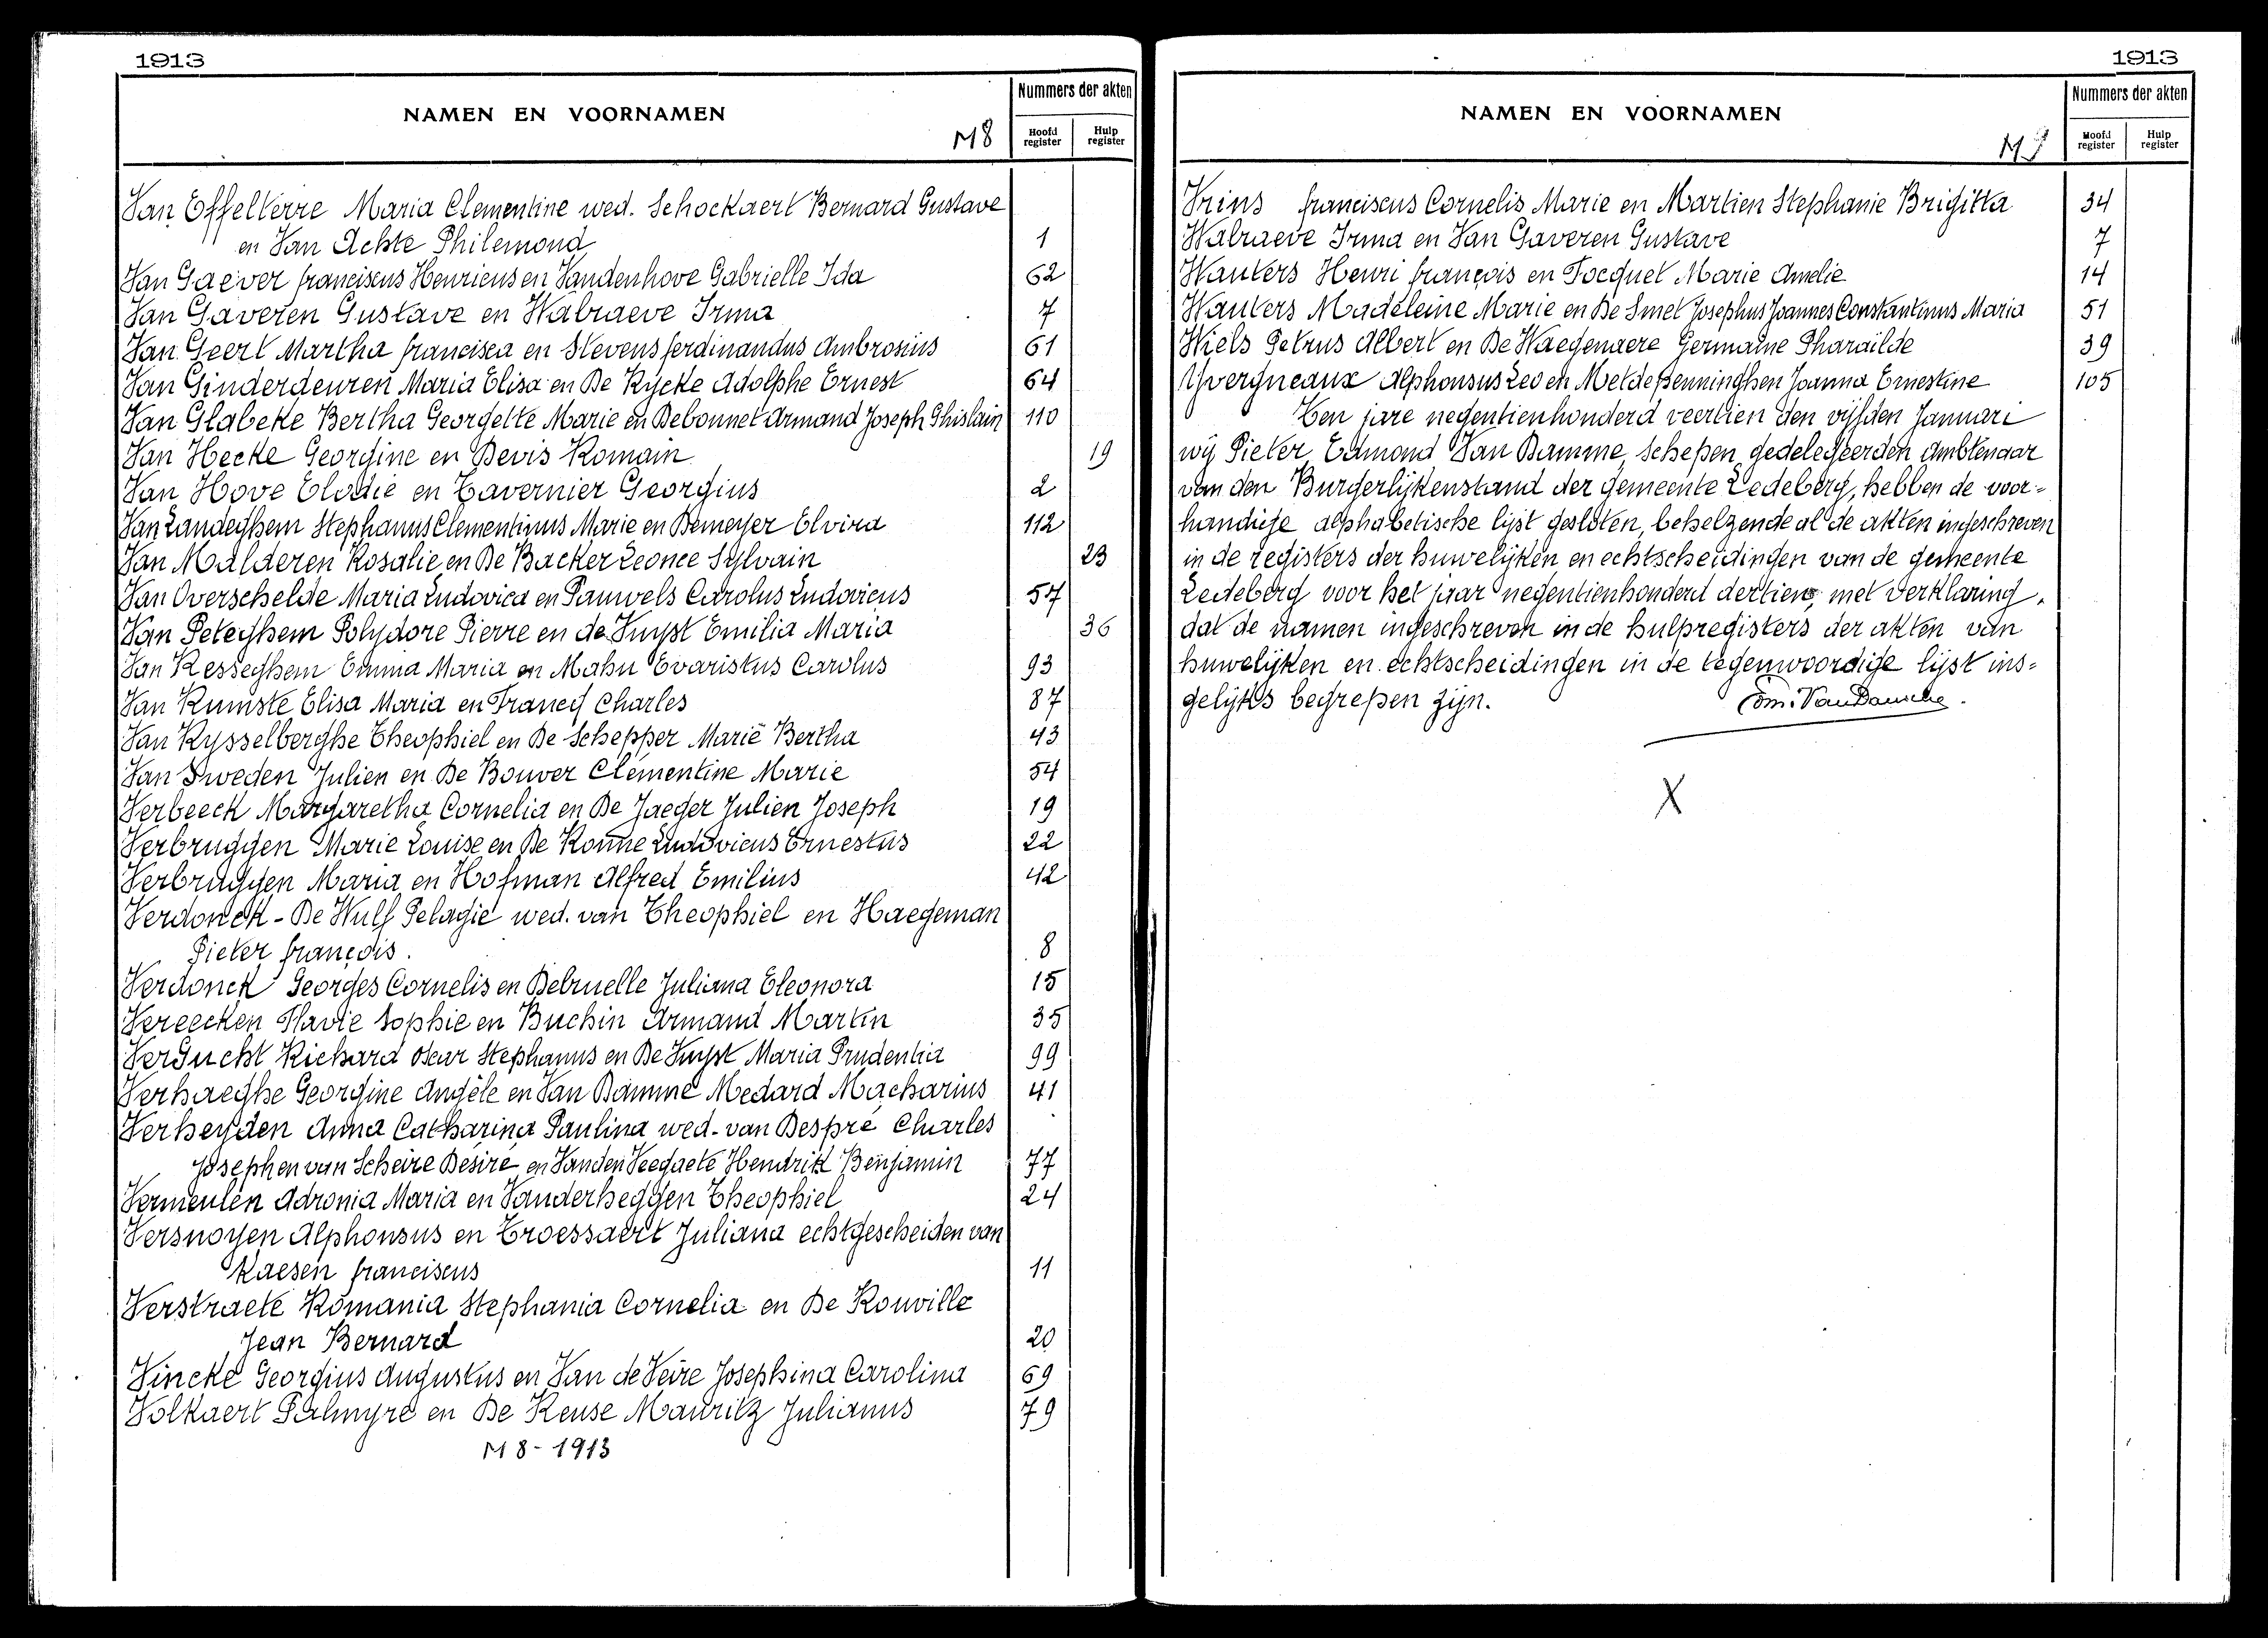 1913
NAMEN EN VOORNAMEN
M8
Nummers der akten
Hoofd register
Hulp register
Van Effelterre Maria Clementine wed. Schockaert Bernard Gustave
en Van Achte Philemond 1
Van Gaever franciscus Henricus en Vandenhove Gabrielle Ida 62
Van Gaveren Gustave en Walraeve Irma 7
Van Geert Martha francisca en Stevens ferdinandus Ambrosius 61
Van Ginderdeuren Maria Elisa en De Rycke Adolphe Ernest 64
Van Glabeke Bertha Georgette Marie en Debonnet Armand Joseph Ghislain 110
Van Hecke Georgine en Devis Romain 19
Van Hove Elodie en Tavernier Georgius 2
Van Landeghem Stephanus Clementinus Marie en Demeyer Elvira 112
Van Malderen Rosalie en De Backer Leonce Sylvain 23
Van Overschelde Maria Ludovica en Pauwels Carolus Ludovicus 57
Van Peteghem Polydore Pierre en de Kuyst Emilia Maria 36
Van Resseghem Emma Maria en Mahu Evaristus Carolus 93
Van Rumste Elisa Maria en Francq Charles 87
Van Rysselberghe Theophiel en De Schepper Marie Bertha 43
Van Sweden Julien en De Bouver Clementine Marie 54
Verbeeck Margaretha Cornelia en De Jaeger Julien Joseph 19
Verbruggen Marie Louise en De Ronne Ludovicus Ernestus 22
Verbruggen Maria en Hofman Alfred Emilius 42
Verdonck - De Wulf Pelagie wed. van Theophiel en Haegeman
Pieter françois. 8
Verdonck Georges Cornelis en Debruelle Juliana Eleonora 15
Vereecken Flavie Sophie en Buchin Armand Martin 35
VerGucht Richard Oscar Stephanus en De Kuyst Maria Prudentia 99
Verhaeghe Georgine Angèle en Van Damme Medard Macharius 41
Verheyden Anna Catharina Paulina wed. van Despré Charles
Joseph en van Scheire Desiré en Vanden Veegaete Hendrik Benjamin 77
Vermeulen Adronia Maria en Vanderheggen Theophiel 24
Versnoyen Alphonsus en Troessaert Juliana echtgescheiden van
Kaesen franciscus 11
Verstraete Romania Stephania Cornelia en De Rouville
Jean Bernard 20
Vincke Georgius Augustus en Van de Veire Josephina Carolina 69
Volkaert Palmyre en De Keuse Mauritz Julianus 79
M8-1913
1913
NAMEN EN VOORNAMEN
M9
Nummers der akten
Hoofd register
Hulp register
Vrins franciscus Cornelis Marie en Martien Stephanie Brigitta 34
Walraeve Irma en Van Gaveren Gustave 7
Wauters Henri françois en Tocquet Marie Amelie 14
Wauters Madeleine Marie en De Smet Josephus Joannes Constantinus Maria 51
Wiels Petrus Albert en De Waegenaere Germaine Pharaïlde 39
Yvergneaux Alphonsus Leo en Meldepenninghen Joanna Ernestine 105
Ten jare negentienhonderd veertien den vijfden Januari
wij Pieter Edmond Van Damme, schepen gedelegeerden ambtenaar
van den Burgerlijkenstand der gemeente Ledeberg, hebben de voor-
handige alphabetische lijst gesloten, behelzende al de akten ingeschreven
in de registers der huwelijken en echtscheidingen van de gemeente
Ledeberg voor het jaar negentienhonderd dertien, met verklaring,
dat de namen ingeschreven in de hulpregisters der akten van
huwelijken en echtscheidingen in de tegenwoordige lijst ins-
gelijks begrepen zijn. Edm. Van Damme.
X